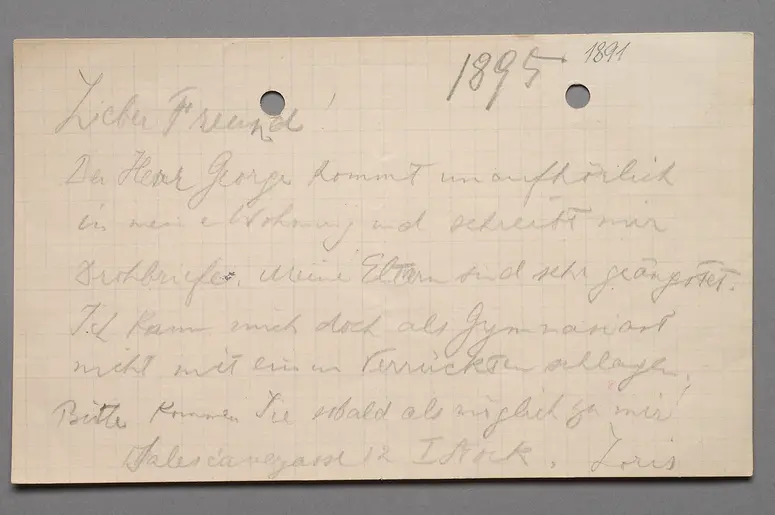 1895 1891
Lieber Freund!
Der Herr George kommt unaufhörlich
in meine Wohnung und schreibt mir
Drohbriefe. Meine Eltern sind sehr geängstet.
Ich kann mich doch als Gymnasiast
nicht mit einem Verrückten schlagen.
Bitte kommen Sie sobald als möglich zu mir!
Salesianergasse 12 I Stock. Loris